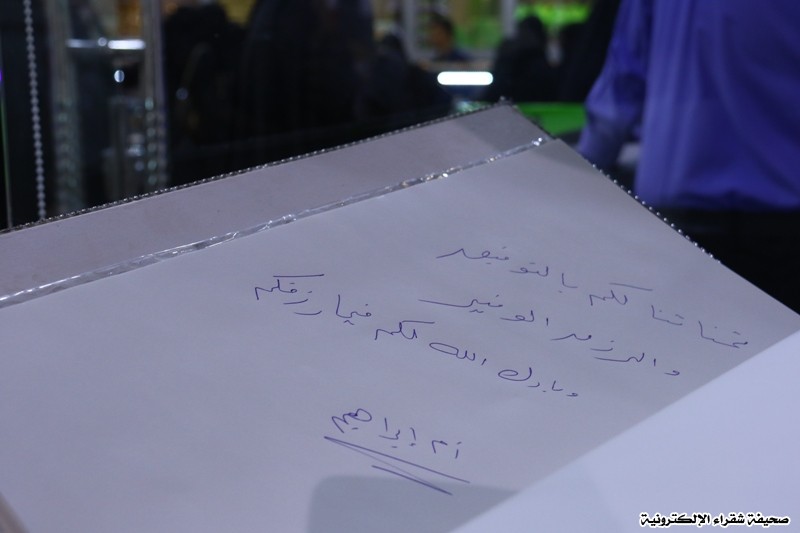 تمنياتنا لكم بالتوفيق
والرزق الوفير
وبارك الله لكم فيما رزقكم
أم إبراهيم
صحيفة شقراء الإلكترونية